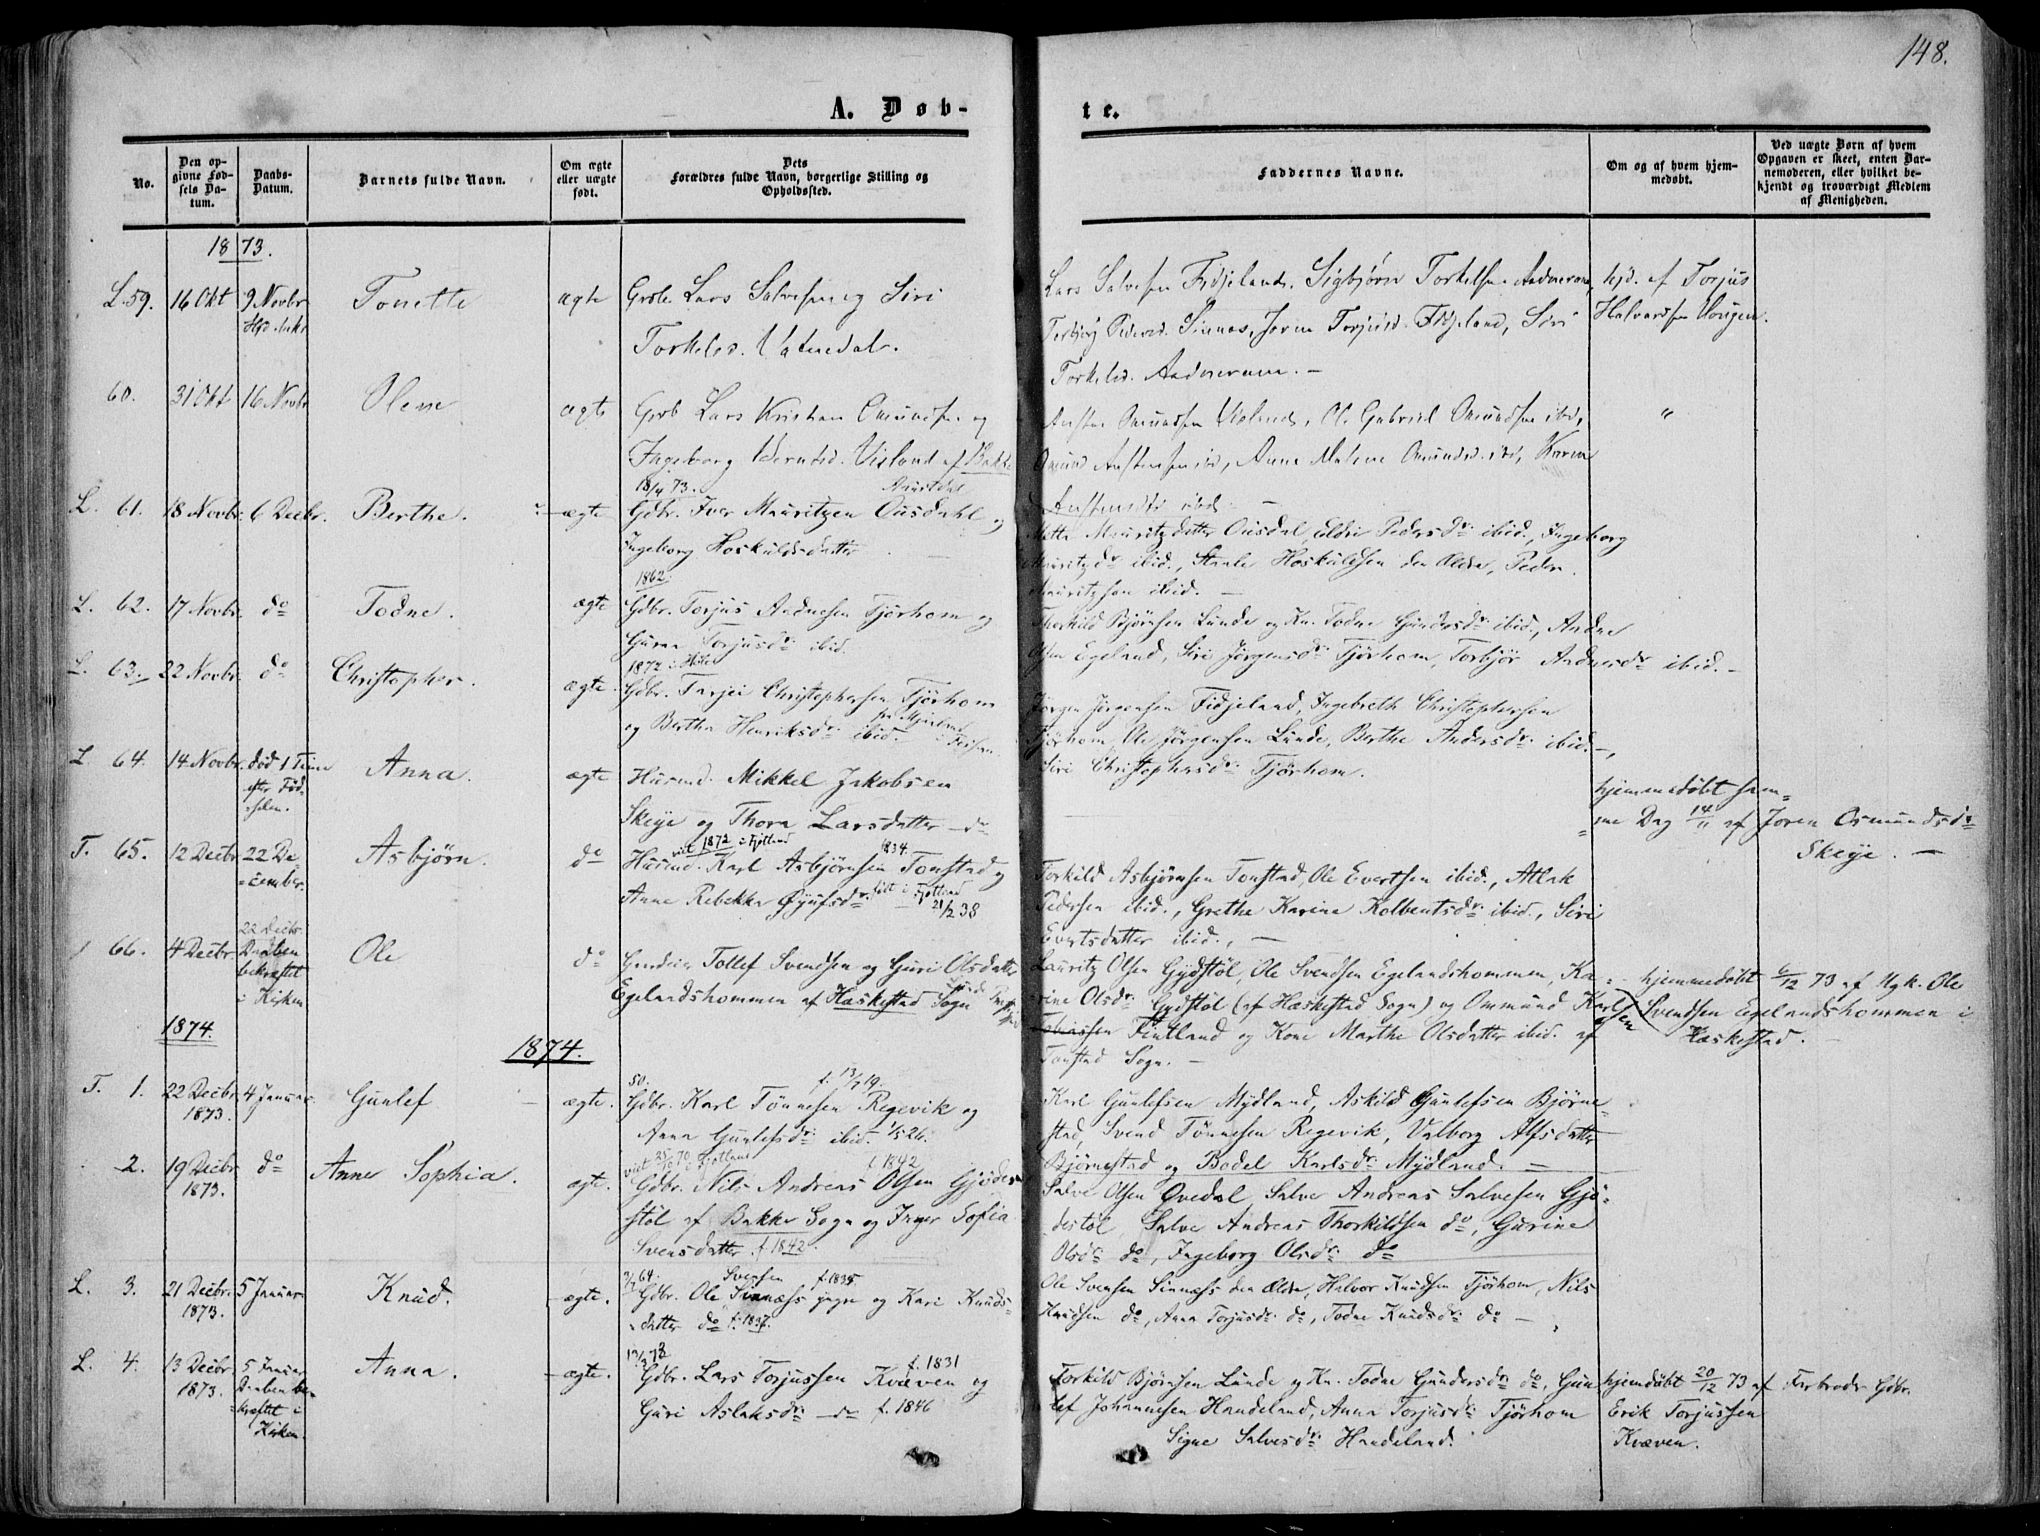 148.
A. Døb-
te.
No.
Den op-
givne Fød-
sels Da-
tum.
Daabs-
Datum.
Barnets fulde Navn.
Om ægte
eller uægte
født.
Dets
Forældres fulde Navn, borgerlige Stilling og
Opholdssted.
Faddernes Navne.
Om og af hvem hjem-
medøbt.
Ved uægte Børn af hvem
Opgaven er skeet, enten Bar-
nemoderen, eller hvilket be-
kjendt og troværdigt Medlem
af Menigheden.
1873.
L. 59. 16 Okt 9 Novbr Tonette ægte Grbr. Lars Salvesen og Siri
Torkelsd. Vatnedal.
Lars Salvesen Fidjeland, Sigbjørn Torkelsen Aadneram,
Torborg Pedersd. Sinnes, Joren Torjusd. Fidjeland, Siri
Torkelsd. Aadneram. —
hjd. af Torjus
Halvardsen Haugen.
60. 31 Okt 16 Novbr Olene ægte Grb Lars Kristian Omundsen og
Ingeborg Berntsd. Visland af Bakke
Austen Omundsen Visland, Ole Gabriel Omundsen ibid,
Omund Austensen ibid, Anne Malene Omundsd. ibid, Karen
Austensdtr ibid. —
"
L. 61. 18 Novbr. 6 Decbr. Berthe. ægte
18/4 73.
Gdbr. Iver Mauritzen Ousdahl og
Ingeborg Hoskuldsdatter
Mette Mauritzdatter Ousdal, Eldri Pedersdr. ibid., Ingeborg
Mauritzdr. ibid., Staale Hoskuldsen den Ældre, Peder
Mauritzsen ibid. —
L. 62. 17 Novbr. do Todne. ægte
1862.
Gdbr. Torjus Aadnesen Tjørhom og
Guran Torjusdr. ibid.
Thorkild Bjørnsen Lunde og Kn. Todne Gundersdr. ibid., Andne
Olsen Egeland, Siri Jørgensdr. Tjørhom, Torbjør Aadnesdr. ibid. —
L. 63. 22 Novbr. do Christopher. ægte.
Gdbr. Tarjei Christophersen Tjørhom
og Bertha Henriksdr. ibid.
Jørgen Jørgensen Fidjeland, Ingebreth Christophersen
Tjørhom, Ole Jørgensen Lunde, Berthe Andersdr. ibid.—,
Siri Christophersdr. Tjørhom.
L 64. 14 Novbr. død 1 Time
efter Fød-
selen.
Anna. ægte Husmd. Mikkel Jakobsen
Skeye og Thora Larsdatter — do
hjemmedøbt sam-
me Dag 14/11 af Joren Osmundsdr.
Skeye. —
T. 65. 12 Decbr. 22 De-
cember.
Asbjørn. do
viet 1872 i Fjotland 1834.
Husmd. Karl Asbjørnsen Tonstad og
Anne Rebekka Øyufsdr. født i Fjotland
21/2 38
Torkild Asbjørnsen Tonstad, Ole Evertsen ibid., Atlak
Pedersen ibid., Grethe Karine Kolbentsdr. ibid., Siri
Evertsdatter ibid., —
66. 4 Decbr. 22 Decbr.
Daaben
bekræftet
i Kirken
Ole do Gardeier Tollef Svendsen og Guri Olsdatter
Egelandshommen af Hæskestad Sogn
Lauritz Olsen Gydstøl, Ole Svendsen Egelandshommen, Ka-
rine Olsdr. Gydstøl (af Hæskestad Sogn) og Ommund Karl-
sen
Tobiassen Fintland og Kone Marthe Olsdatter ibid. af
Tonstad Sogn. —
hjemmedøbt 6/12 73 af Ugk. Ole
Svendsen Egelandshommen i
Hæskestad.
1874. 1874.
T. 1. 22 Decbr. 4 Januar.
1873.
Gunlef ægte.
50. f. 13/7 19.
Gdbr. Karl Tønnesen Regevik og
Anna Gunlefsdr. ibid. 1/5 26.
Karl Gunlefsen Mydland, Askild Gunlefsen Bjørne-
stad, Svend Tønnesen Regevik, Valborg Alfsdatter
Bjørnestad og Bodel Karlsdr. Mydland. —
2. 19 Decbr. do
1873.
Anne Sophia. ægte.
f. 1842
Gdbr. Nils Andreas Olsen Gjødes-
støl af Bakke Sogn og Inger Sofia
Svensdatter f. 1842.
Salve Olsen Øvedal, Salve Andreas Salvesen Gjø-
destøl, Salve Andreas Thorkildsen do, Gurine
Olsdr. do, Ingeborg Olsdr. do
L. 3. 21 Decbr. 5 Januar
1873.
Knud. ægte.
2/7 64. Svensen f. 1835
Gdbr. Ole Sinnæhs yngre og Kari Knuds-
datter do f. 1837.
Ole Svensen Sinnæhs den Ældre, Halvor Knudsen Tjørhom, Nils
Knudsen do, Anna Torjusdr. do, Todne Knudsdr. do —
L. 4. 13 Decbr. 5 Januar
1873. Daaben be-
kræftet i
Kirken.
Anna. ægte.
f. 1831
Gdbr. Lars Torjussen Kvæven og
Guri Aslaksdr. — do f. 1846
Torkild Bjørnsen Lunde og Kn. Todne Gundersdr. do, Gun-
lef Johannesen Handeland, Anna Torjusdr. Tjørhom
Signe Salvesdr. Handeland.
hjemdøbt 20/12 73 af Farbroder Gdbr.
Erik Torjussen
Kvæven.